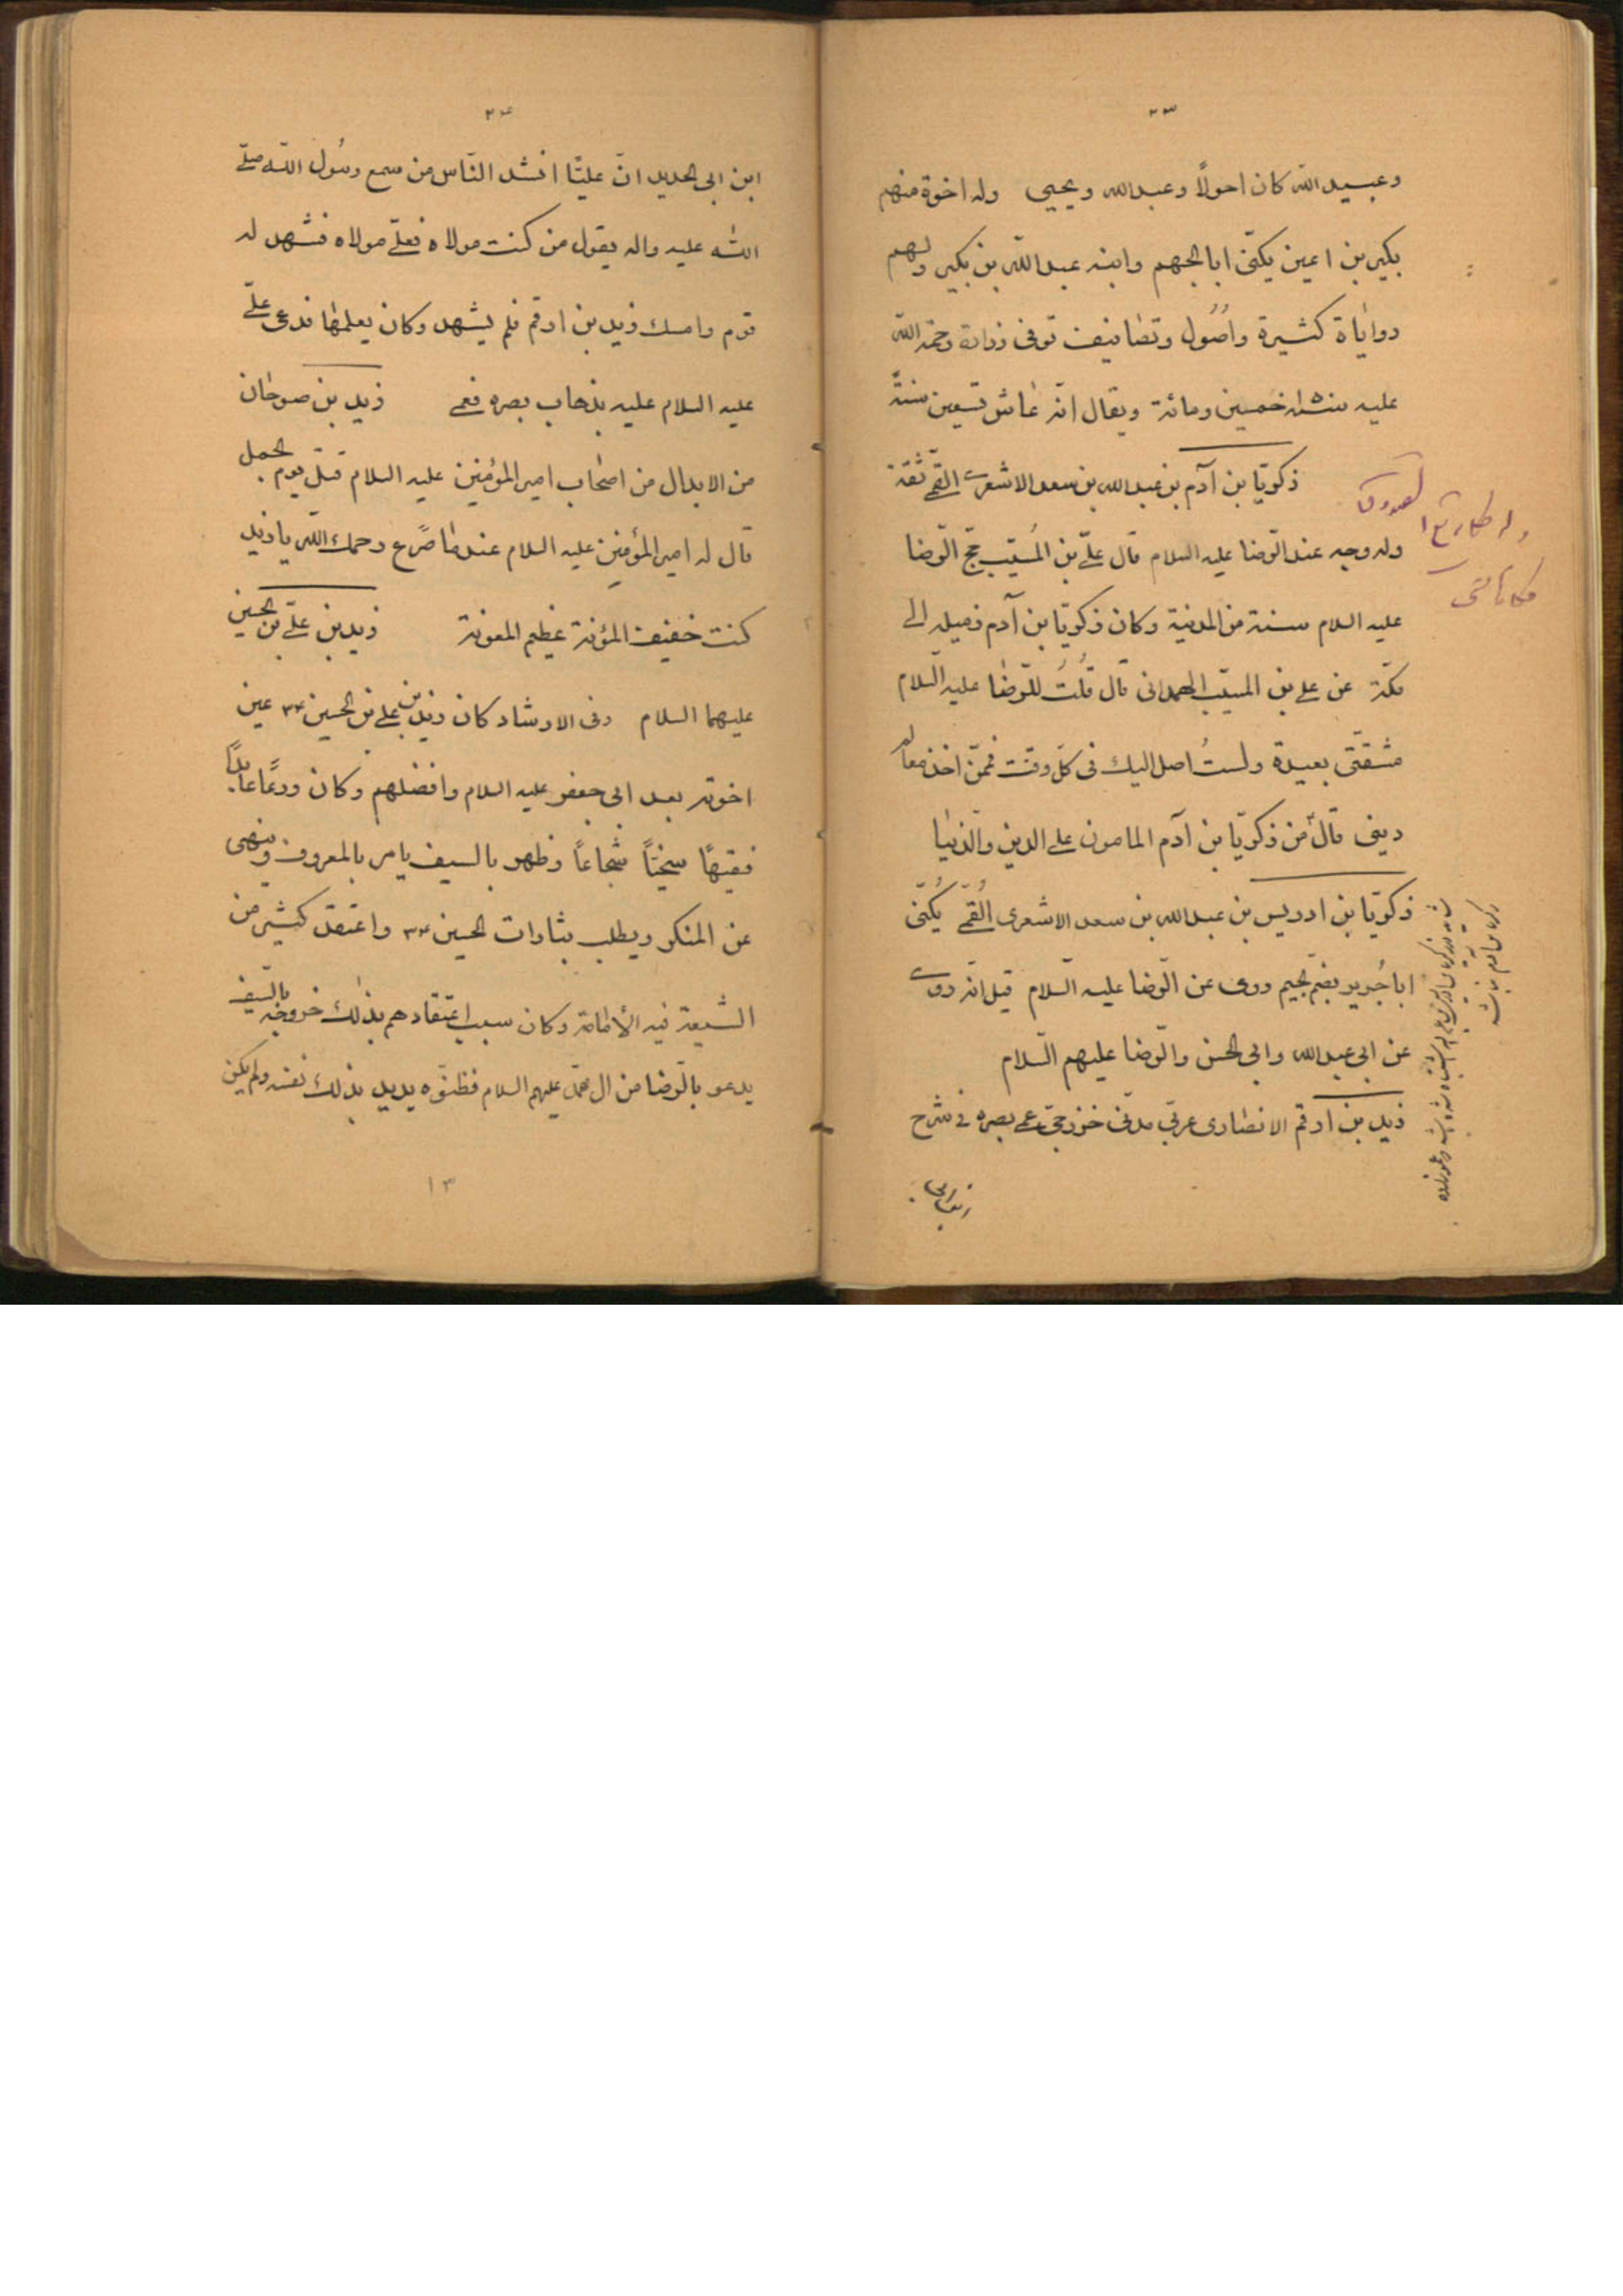 ٣٣
وعبيد الله كان احولاً وعبدالله ويحيى وله اخوة منهم
بكير بن اعين يكنّى ابا الجهم وابنه عبدالله بن بكير ولهم
رواياة كثيرة واصُول وتصانيف توفى زرارة رحمة الله
عليه سنة خمسين ومائة ويقال انّه عاش تسعين سنةً
زكريّا بن آدم بن عبدالله بن سعد الاشعرى القمّى ثقة
وله وجه عند الرّضا عليه السلام قال علىّ بن المُسيّب حجّ الرّضا
عليه السلام سنة من المدينة وكان زكريّا بن آدم زميله الى
مكّة عن على بن المسيّب الهمدانى قال قُلتُ للرّضا عليه السّلام
شقّتى بعيدة ولستُ اصل اليك فى كلّ وقت فممّن اخذ معالم
دينى قال من زكريّا بن آدم المامون على الدين والدّنيا
زكريّا بن ادريس بن عبدالله بن سعد الاشعرى القُمّى يُكنّى
اباجُرير بضم الجيم روى عن الرّضا عليه السّلام قيل انّه روى
عن ابى عبدالله وابى الحسن والرّضا عليهم السّلام
زيد بن ارقم الانصارى عربّى مدنّى خزرجىّ عمى بصره فى شرح
٣٤
ابن ابى الحديد انّ عليّا انشد النّاس من سمع رسُول الله صلّى
الله عليه واله يقول من كنت مولاه فعلىّ مولاه فشهد له
قوم وامسك زيد بن ارقم فلم يشهد وكان يعلمها فدعى علىّ
عليه السلام عليه بذهاب بصره فعمى زيد بن صوحان
من الابدال من اصحاب امير المؤمنين عليه السلام قتل يوم الجمل
قال له امير المؤمنين عليه السلام عند ما صُرع رحمك الله يا زيد
كنت خفيف المؤنة عظيم المعونة زيد بن علىّ بن الحسين
عليهما السلام وفى الارشاد كان زيد بن على بن الحسين ع عين
اخوته بعد ابى جعفر عليه السلام وافضلهم وكان ورعًا عابدًا
فقيهًا سخيّاً شجاعًا وظهر بالسيف يامر بالمعروف وينهى
عن المنكر ويطلب بثارات الحسين ع واعتقد كثير من
الشيعة فيه الأمامة وكان سبب اعتقادهم بذلك خروجه بالسّيف
يدعو بالرّضا من ال محمّد عليهم السلام فظنّوه يريد بذلك نفسه ولم يكن
١٣